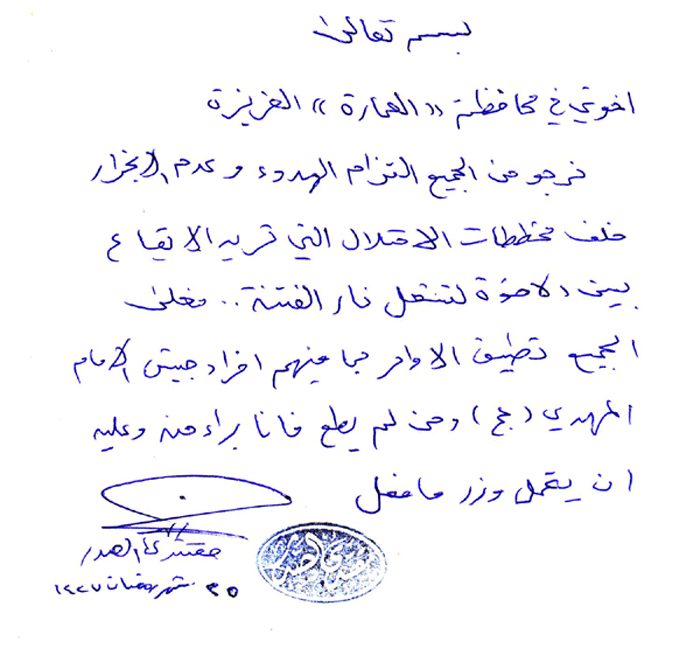 بسمه تعالى
اخوتي في محافظة «العمارة» العزيزة
نرجو من الجميع التزام الهدوء وعدم الانجرار
خلف مخططات الاحتلال التي تريد الايقاع
بين الاخوة لتشتعل نار الفتنة.. فعلى
الجميع تطبيق الاوامر بما فيهم افراد جيش الامام
المهدي (عج) ومن لم يطع فانا براء منه وعليه
ان يتحمل وزر ما فعل
مقتدى الصدر
٢٥ شهر رمضان ١٤٢٧